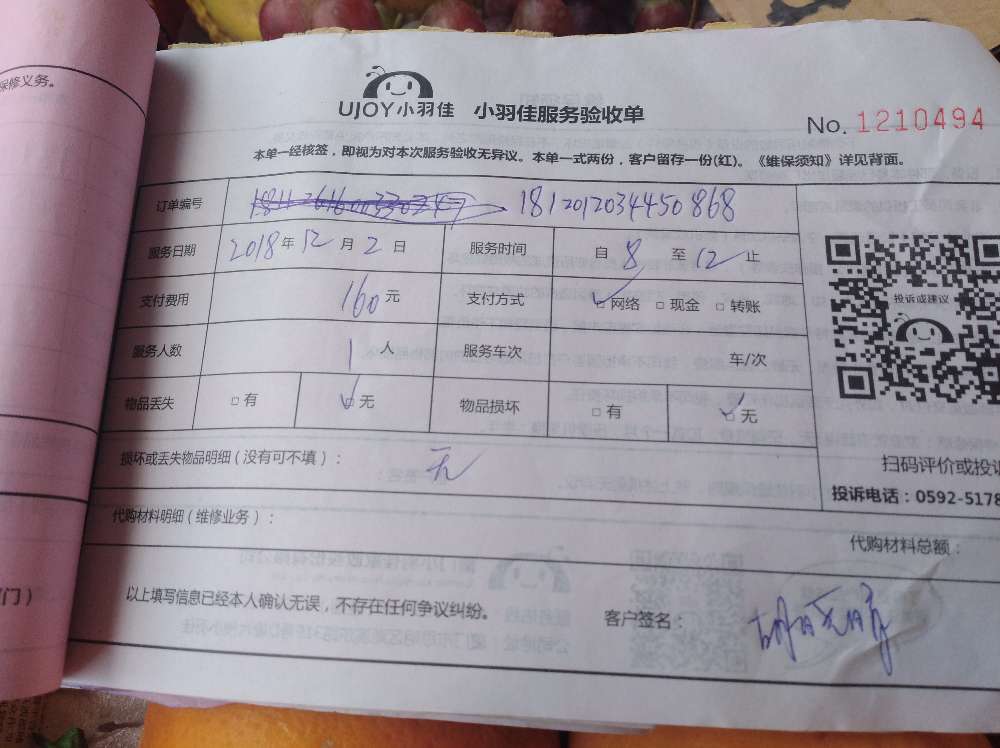 保修义务。
UJOY小羽佳 小羽佳服务验收单
No. 1210494
本单一经核签，即视为对本次服务验收无异议。本单一式两份，客户留存一份(红)。《维保须知》详见背面。
订单编号 1812012034450868
服务日期 2018年12月2日 服务时间 自8至12止
投诉或建议
支付费用 160元 支付方式 ☑网络 □现金 □转账
服务人数 1人 服务车次 车/次
物品丢失 □有 ☑无 物品损坏 □有 ☑无
损坏或丢失物品明细（没有可不填）： 无
扫码评价或投诉
投诉电话：0592-5178
代购材料明细（维修业务）：
代购材料总额：
以上填写信息已经本人确认无误，不存在任何争议纠纷。
客户签名：